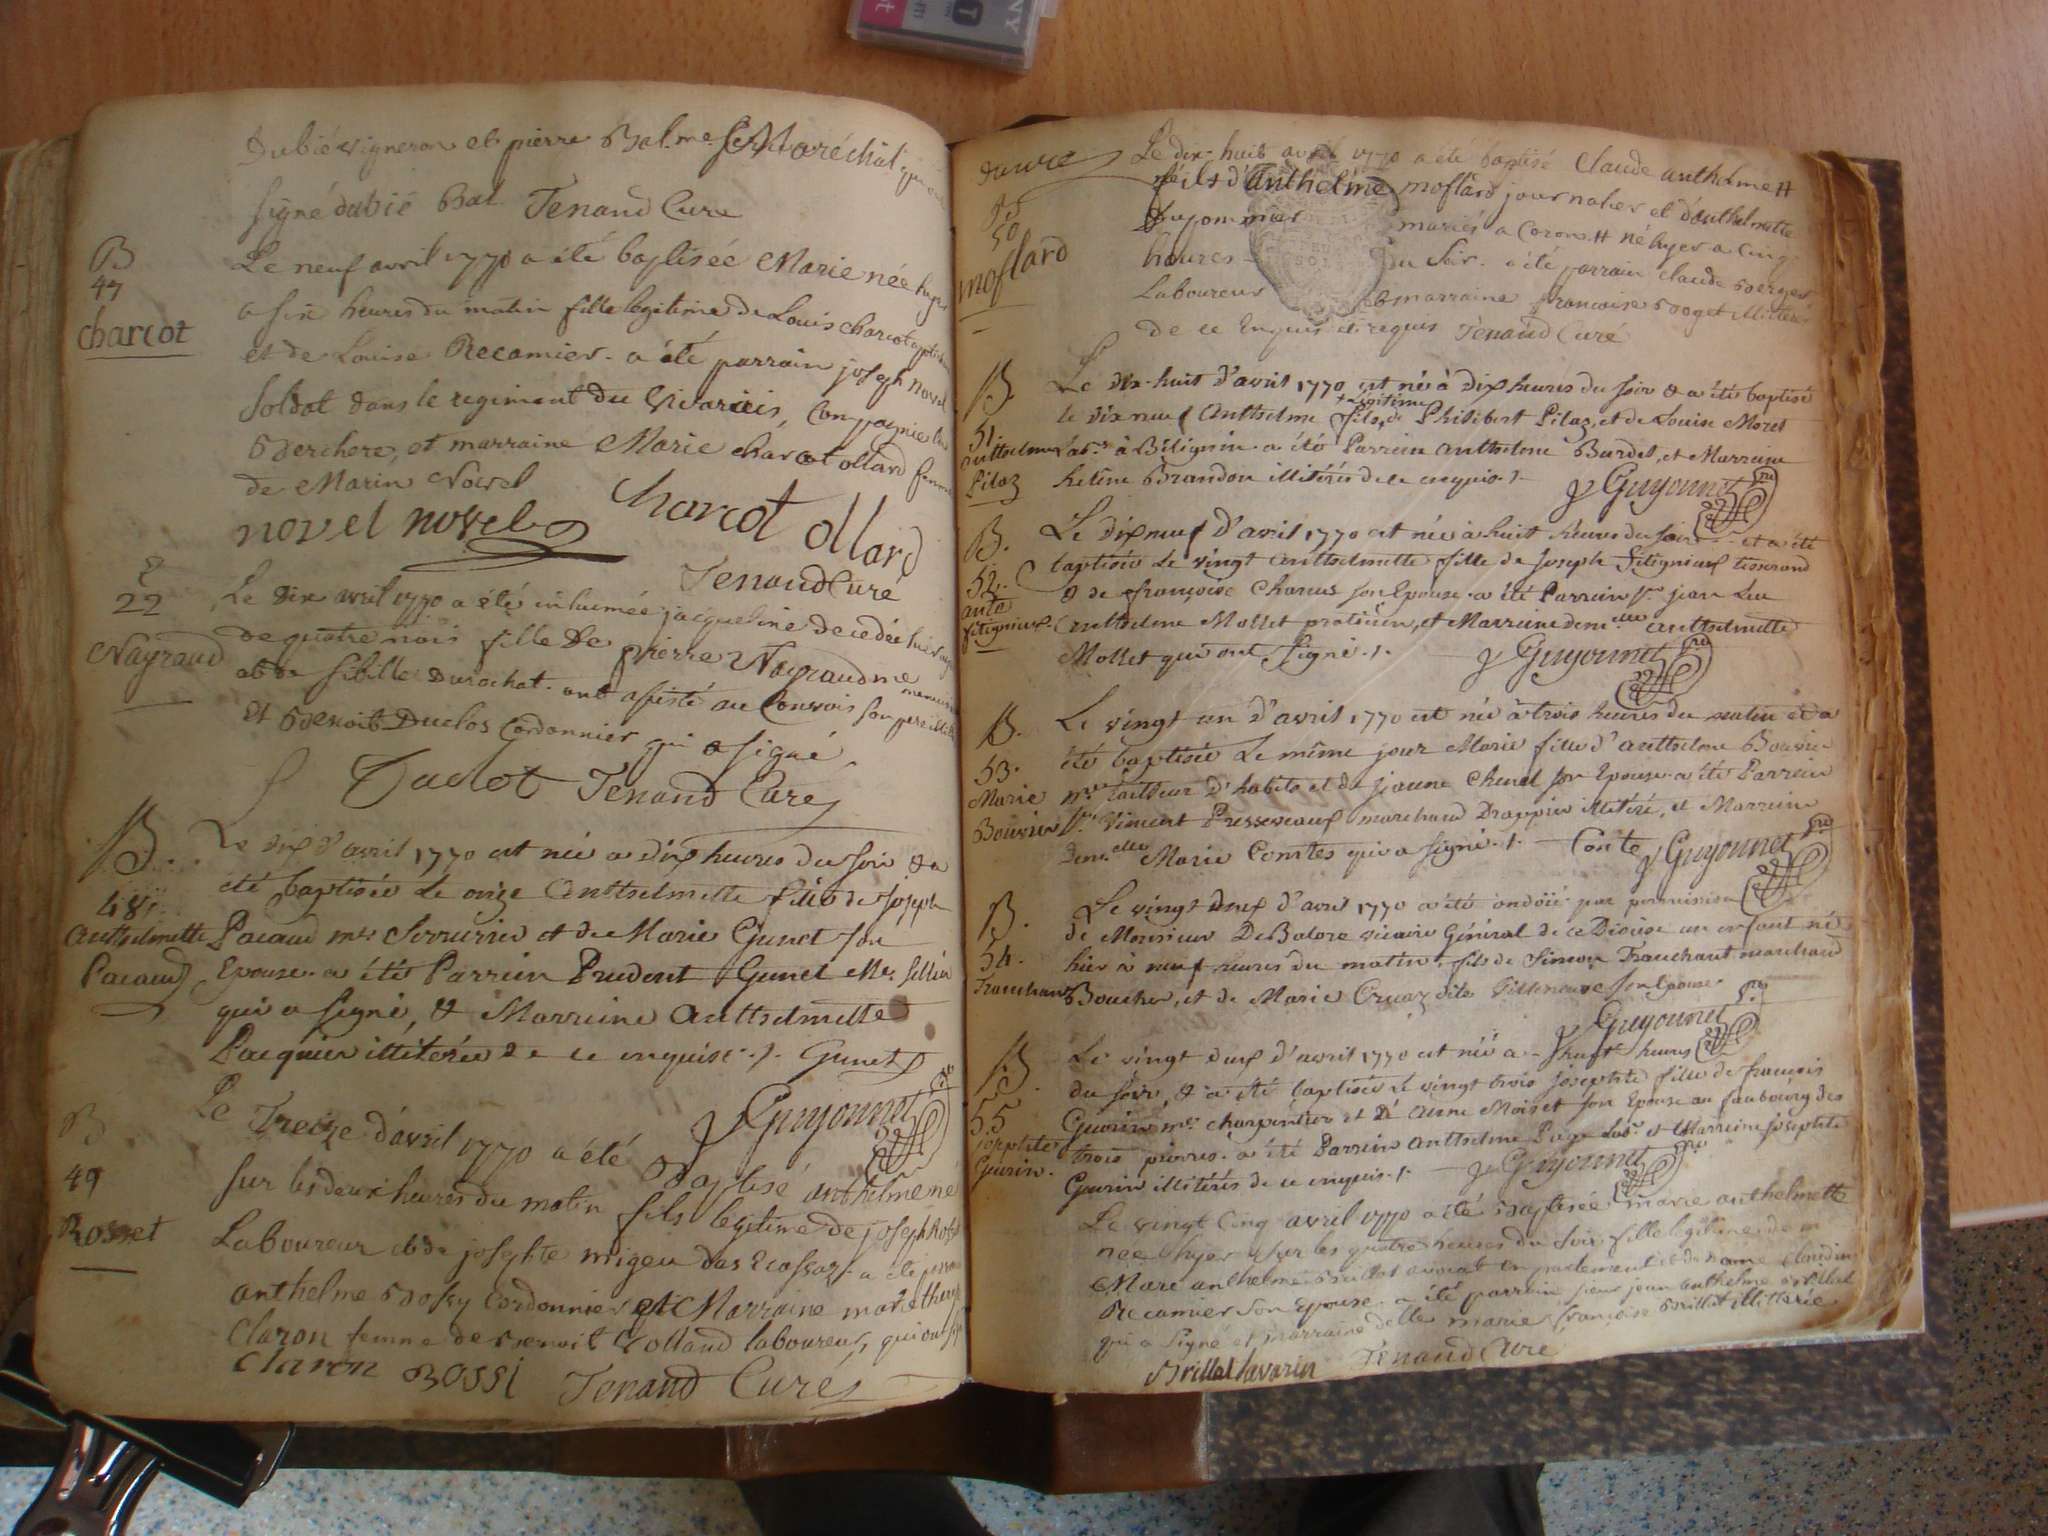 Dubié vigneron et pierre Bal me Maréchal qui ont
signé dubié Bal. Tenand Curé
B
47
charcot
Le neuf avril 1770 a été baptisée Marie née hyer
a six heures du matin fille legitime de Louis charcot
et de Louise Recamier. a été parrain joseph novel
soldat dans le regiment du Vivarais, Compagnie de
Berchere, et marraine Marie charcot ollard femme
de Marin Novel
novel novel charcot ollard
Tenand Curé
22
Nayraud
Le dix avril 1770 a été inhumée jacqueline decedée hier agée
de quatre mois fille de pierre Nayraud me menuisier
et de sibille Durochat. ont assisté au Convois son pere illitere
et Benoit Duclos Cordonnier qui a signé
Duclot Tenand Curé
B.
48.
Anthelmette
Pacaud
Le dix d'avril 1770 est née a dix heures du soir & a
été baptisée le onze Anthelmette fille de Joseph
Pacaud me Serrurier et de Marie Gunet son
Epouse. a été Parrein Prudent Gunet Me. Sellier
qui a signé, & Marreine Anthelmette
Pacquier illiterée de ce enquise ./. Gunet
J Guyonnet
B
49
Rosset
Le Treize d'avril 1770 a été Baptisé anthelme né
sur les deux heures du matin fils legitime de joseph Rosset
Laboureur et de josephte migeu des Ecassaz. a été parrain
anthelme Bossy Cordonnier et Marraine marie therese
Claron femme de Benoit Volland laboureur, qui ont signé
Claron BOSSI Tenand Curé
50
moflard
Le dix-huit avril 1770 a été baptisé Claude anthelme #
fils d'anthelme moflard journalier et d'anthelmette
Dupommier mariés a Coron # né hyer a cinq
heures du soir. a été parrain Claude Berger
Laboureur et marraine francoise Boget illiterés
de ce Enquis et requis Tenand Curé
B.
51.
Anthelme
Pilaz
Le dix-huit d'avril 1770 est né à dix heures du soir & a été baptisé
le dix neuf Anthelme fils + Legitime de Philibert Pilaz, et de Louise Moret
Labr. à Bélignin. a été Parrein Anthelme Burdet, et Marreine
heléne Brandon illitérés de ce enquis ./. J Guyonnet
B.
52.
Le dix neuf d'avril 1770 est née à huit heures du soir et a été
baptisée le vingt Anthelmette fille de Joseph Fitignieux tisserand
& de françoise Charcus son Epouse. a été Parrein Sr. jean Luc
Anthelme Mollet praticien, et Marreine demelle Anthelmette
Mollet qui ont signé ./. J Guyonnet
B.
53.
Marie
Bouvier
Le vingt un d'avril 1770 est née à trois heures du matin et a
été baptisée Le même jour Marie fille d'Anthelme Bouvier
me tailleur d'habits et de jeanne Chenel son Epouse. a été Parrein
Sr. Vincent Presseveaux marchand Drappier illitéré, et Marreine
demelle Marie Comtes qui a signé ./. Conte J Guyonnet
B.
54.
Franchant
Le vingt deux d'avril 1770 a été ondoïé par permission
de Monsieur DeBalore vicaire Général de ce Diocese un enfant né
hier à neuf heures du matin, fils de Simon Franchant marchand
Boucher, et de Marie Cruaz dite Villeneuve son Epouse
J Guyonnet
B.
55
josephte
Guerin.
Le vingt deux d'avril 1770 est née a huit heures
du soir, & a été baptisée le vingt trois josephte fille de françois
Guerin me charpentier et d'Anne Moiset son Epouse au faubourg des
trois pierres. a été Parrein Anthelme Page Labr. et Marreine josephte
Guerin illitérés de ce enquis ./. J Guyonnet
Le vingt Cinq avril 1770 a été baptisée marie anthelmette
née hyer sur les quatre heures du soir fille legitime de
Marc anthelme Brillat avocat en parlement et de dame claudine
Recamier son Epouse. a été parrain sieur jean anthelme Brillat
qui a signé et marraine delle marie francoise Brillat illiterée
Brillat Savarin Tenand Curé